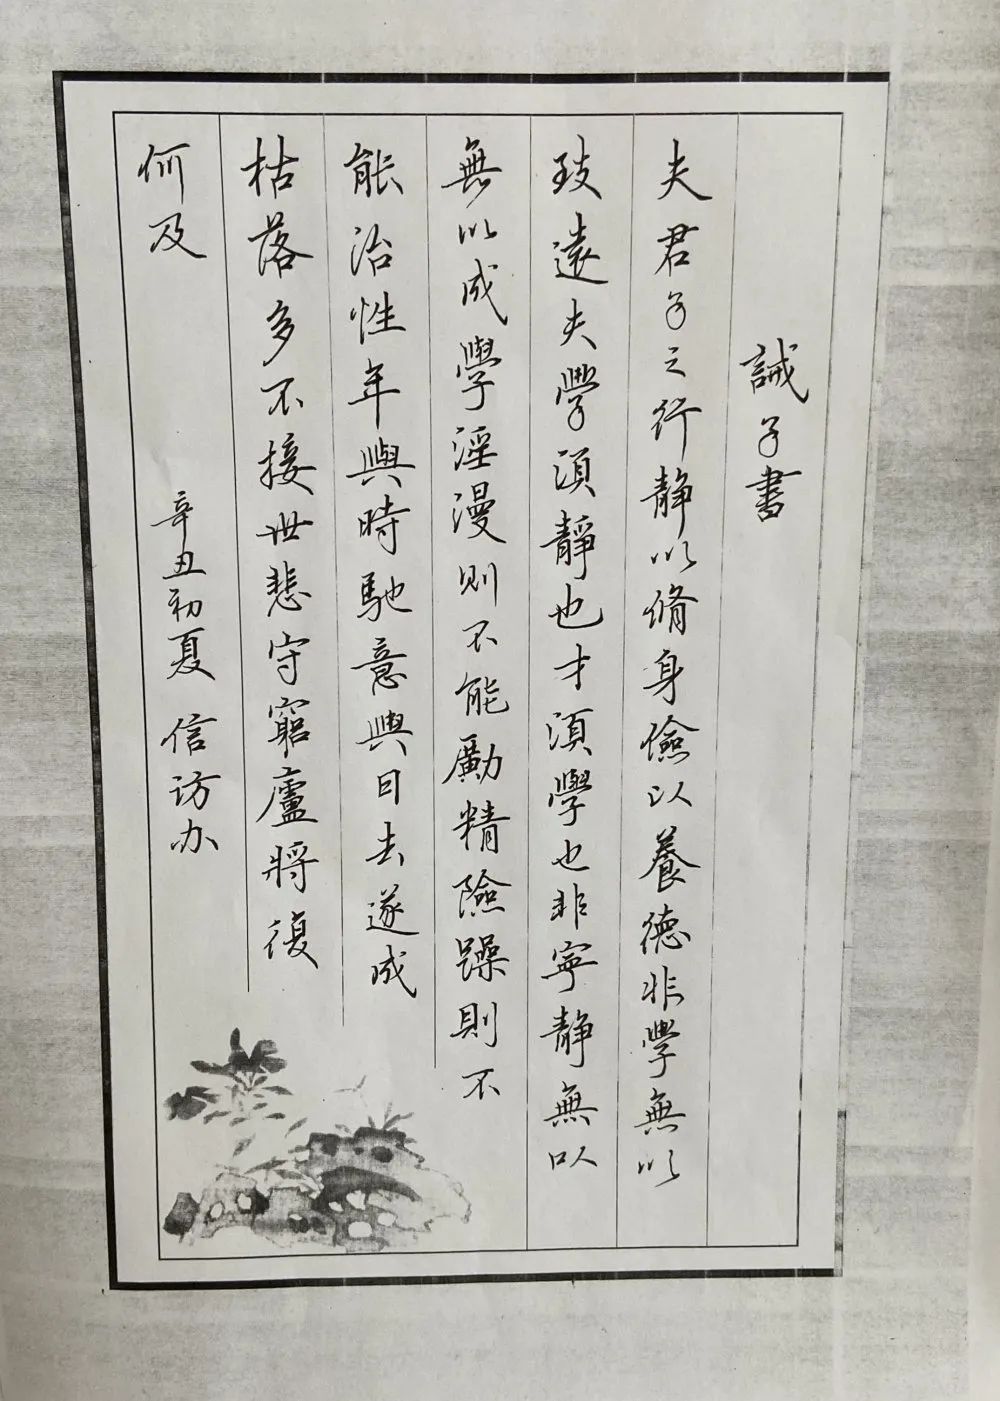 誡子書
夫君子之行静以脩身儉以養德非學無以
致遠夫學須靜也才須學也非寧静無以
無以成學淫漫则不能勵精險躁則不
能治性年與時馳意與日去遂成
枯落多不接世悲守窮廬將復
何及
辛丑初夏 信访办